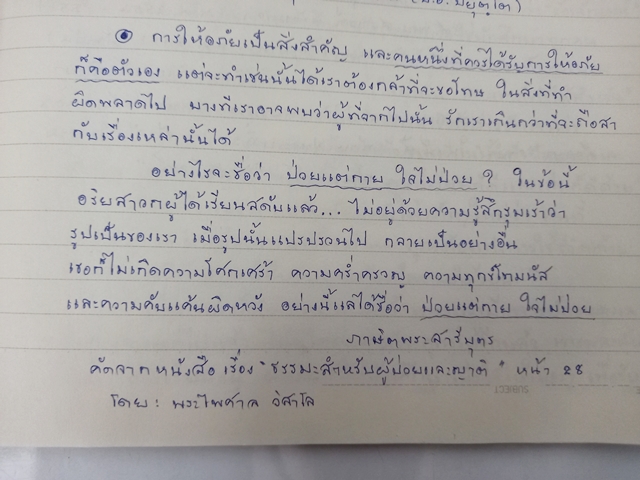 (ป.อ. ปยุตฺโต)
⦿ การให้อภัยเป็นสิ่งสำคัญ และคนหนึ่งที่ควรได้รับการให้อภัย
ก็คือตัวเอง แต่จะทำเช่นนั้นได้เราต้องกล้าที่จะขอโทษ ในสิ่งที่ทำ
ผิดพลาดไป บางทีเราอาจพบว่าผู้ที่จากไปนั้น รักเราเกินกว่าที่จะถือสา
กับเรื่องเหล่านั้นได้
อย่างไรจะชื่อว่า ป่วยแต่กาย ใจไม่ป่วย ? ในข้อนี้
อริยสาวกผู้ได้เรียนสดับแล้ว... ไม่อยู่ด้วยความรู้สึกรุมเร้าว่า
รูปเป็นของเรา เมื่อรูปนั้นแปรปรวนไป กลายเป็นอย่างอื่น
เธอก็ไม่เกิดความโศกเศร้า ความคร่ำครวญ ความทุกข์โทมนัส
และความคับแค้นผิดหวัง อย่างนี้แลได้ชื่อว่า ป่วยแต่กาย ใจไม่ป่วย
ภาษิตพระสารีบุตร
คัดจากหนังสือ เรื่อง "ธรรมะสำหรับผู้ป่วยและญาติ" หน้า 28
SUBJECT
โดย : พระไพศาล วิสาโล